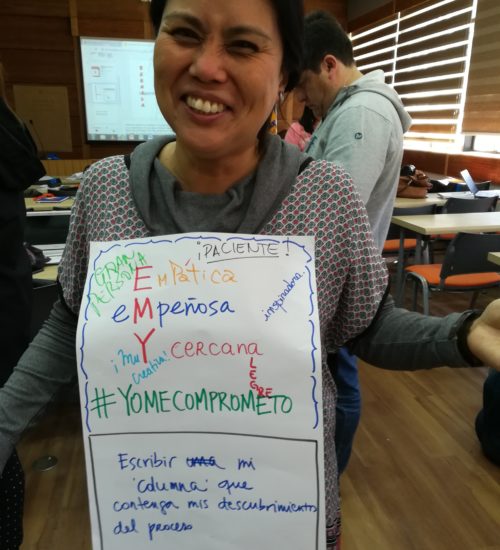 ¡PACIENTE!
GRAN PERSONA
EMPÁTICA
inspiradora.
eMpeñosa
¡Muy creativa!
cercana
aLEGRE
#YOMECOMPROMETO
Escribir una mi
'columna' que
contenga mis descubrimientos
del proceso